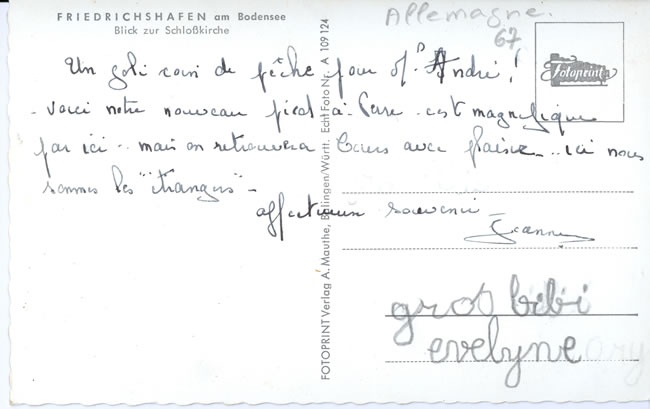 FRIEDRICHSHAFEN am Bodensee
Blick zur Schloßkirche
Allemagne.
67
Fotoprint
Un joli coin de pêche pour Mr André !
- voici notre nouveau pied-à-terre. c'est magnifique
par ici.. mais on retrouvera Tours avec plaisir_.. ici nous
sommes les "étrangers" -
affectueux souvenir -
Jeanne
FOTOPRINT Verlag A. Mauthe, Balingen/Württ. Echt Foto Nr. A 109 124
gros bibi
evelyne